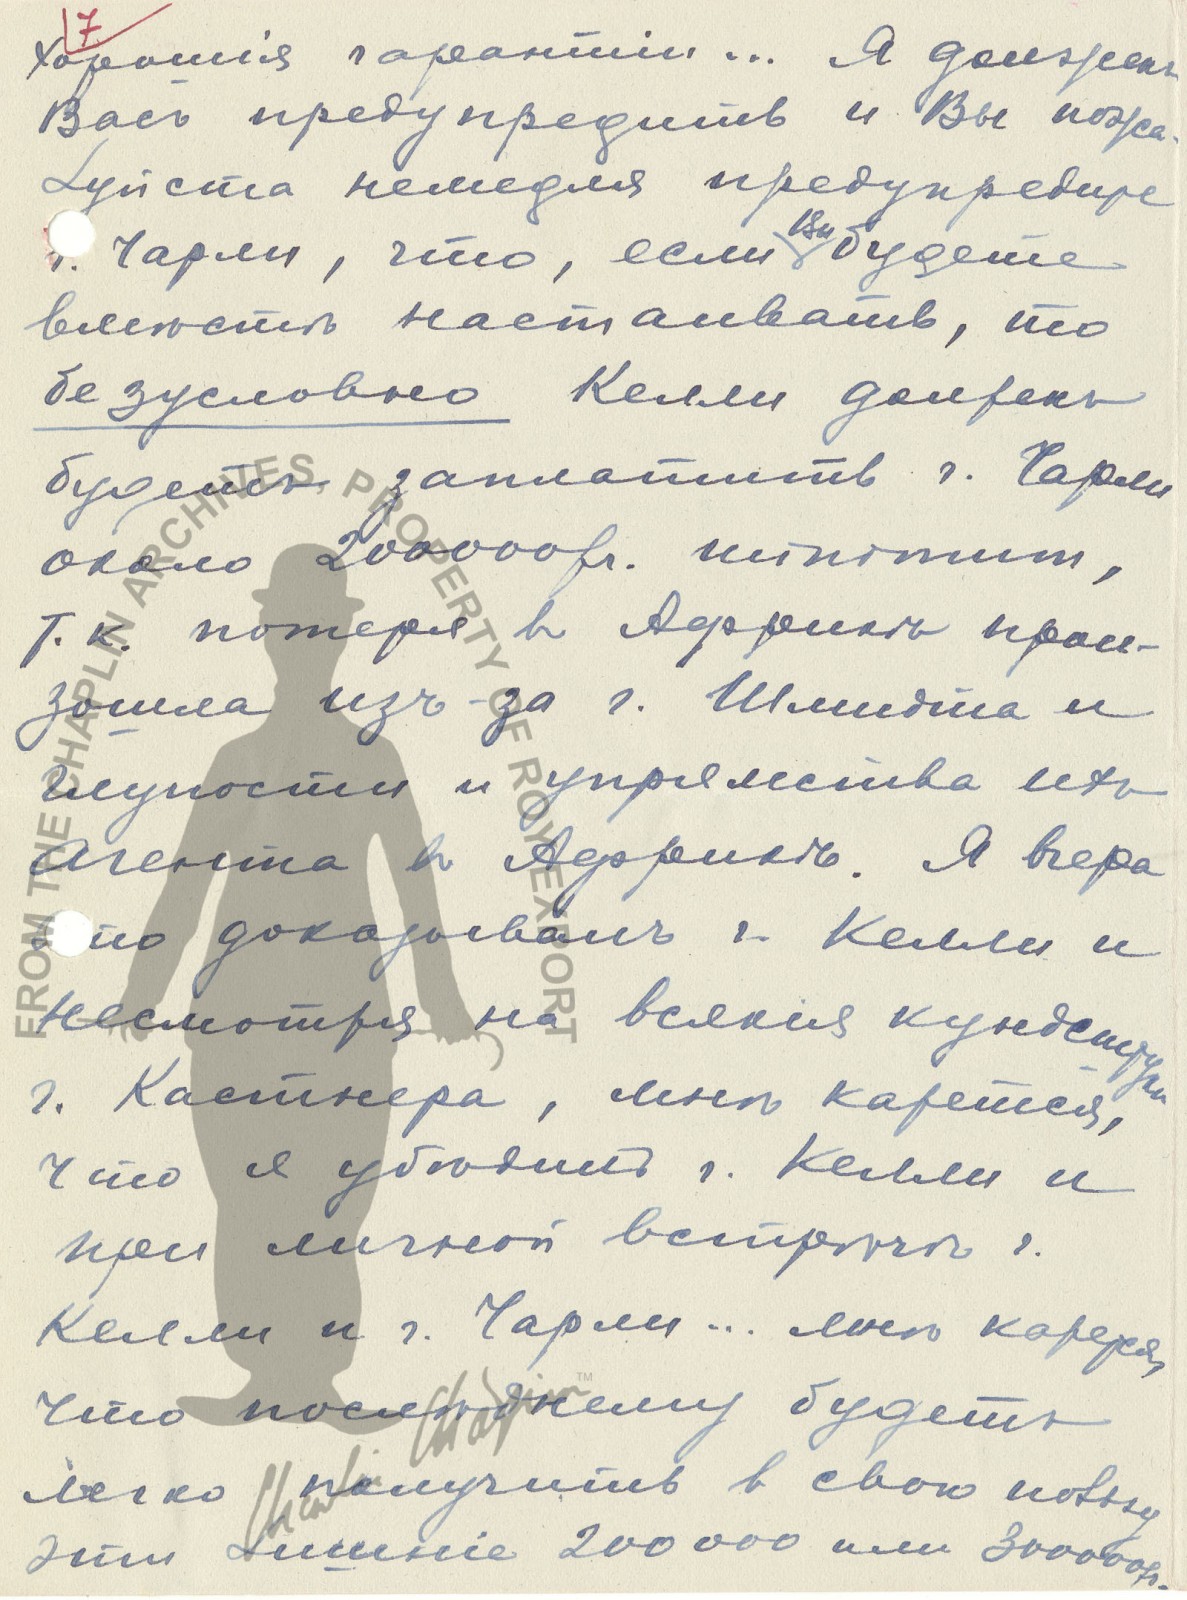 7.
хорошiя гарантiи... Я долженъ
Васъ предупредить и Вы пожа-
луйста немедля предупредите
г. Чарли, что, если Вы будете
вмѣстѣ настаивать, то
безусловно Келли долженъ
будетъ заплатить г. Чарли
около 200000fr. minimum,
т.к. потеря въ Африкѣ прои-
зошла изъ-за г. Шмидта и
глупости и упрямства ихъ
агента въ Африкѣ. Я вчера
это доказывалъ г. Келли и
несмотря на всякiя кундштуки
г. Кастнера, мнѣ кажется,
что я убѣдилъ г. Келли и
при личной встрѣчѣ г.
Келли и г. Чарли... мнѣ кажется,
что послѣднему будетъ
легко получить в свою пользу
эти лишнiе 200000 или 300000fr.
FROM THE CHAPLIN ARCHIVES, PROPERTY OF ROY EXPORT
Charlie Chaplin TM